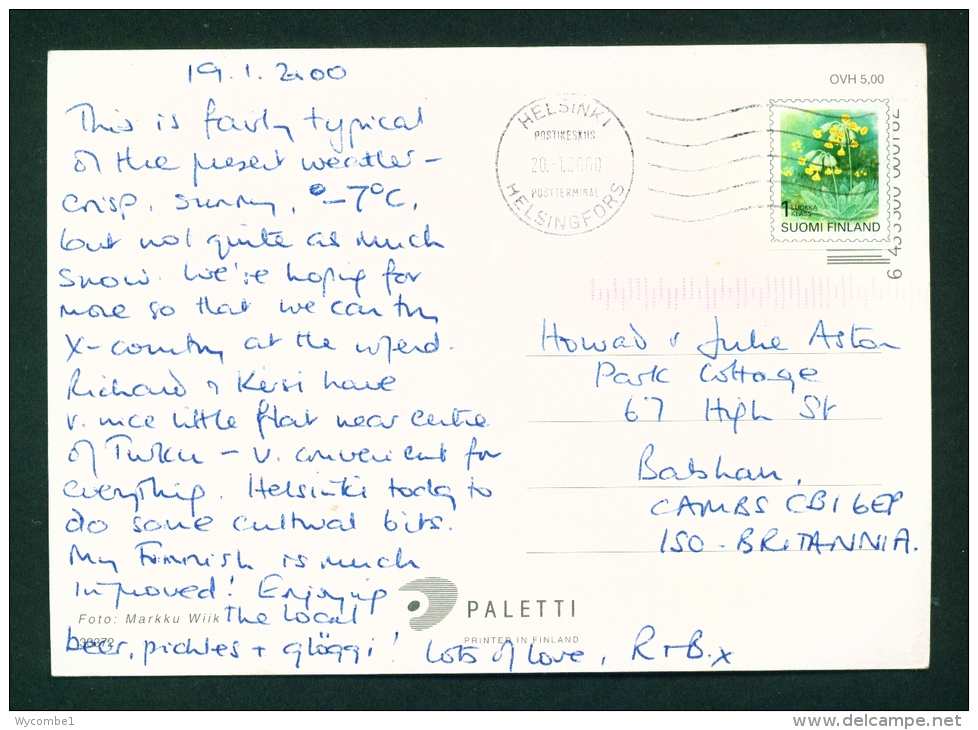 19.1.2000
This is fairly typical
of the present weather -
crisp, sunny, -7°C,
but not quite as much
snow. We're hoping for
more so that we can try
X-country at the w/end.
Richard & Kirsi have
v. nice little flat near centre
of Turku - v. convenient for
everything. Helsinki today to
do some cultural bits.
My Finnish is much
improved! Enjoying
the local
beer, pickles + glöggi! Lots of love, R + B. x
Foto: Markku Wiik
PALETTI
PRINTED IN FINLAND
OVH 5,00
HELSINKI
POSTIKESKUS
20.-1.2000
POSTTERMINAL
HELSINGFORS
1 LUOKKA
KLASS
SUOMI FINLAND
Howard & Julie Aston
Park Cottage
67 High St
Balsham,
CAMBS CB1 6EP
ISO-BRITANNIA.
Wycombe1
www.delcampe.net